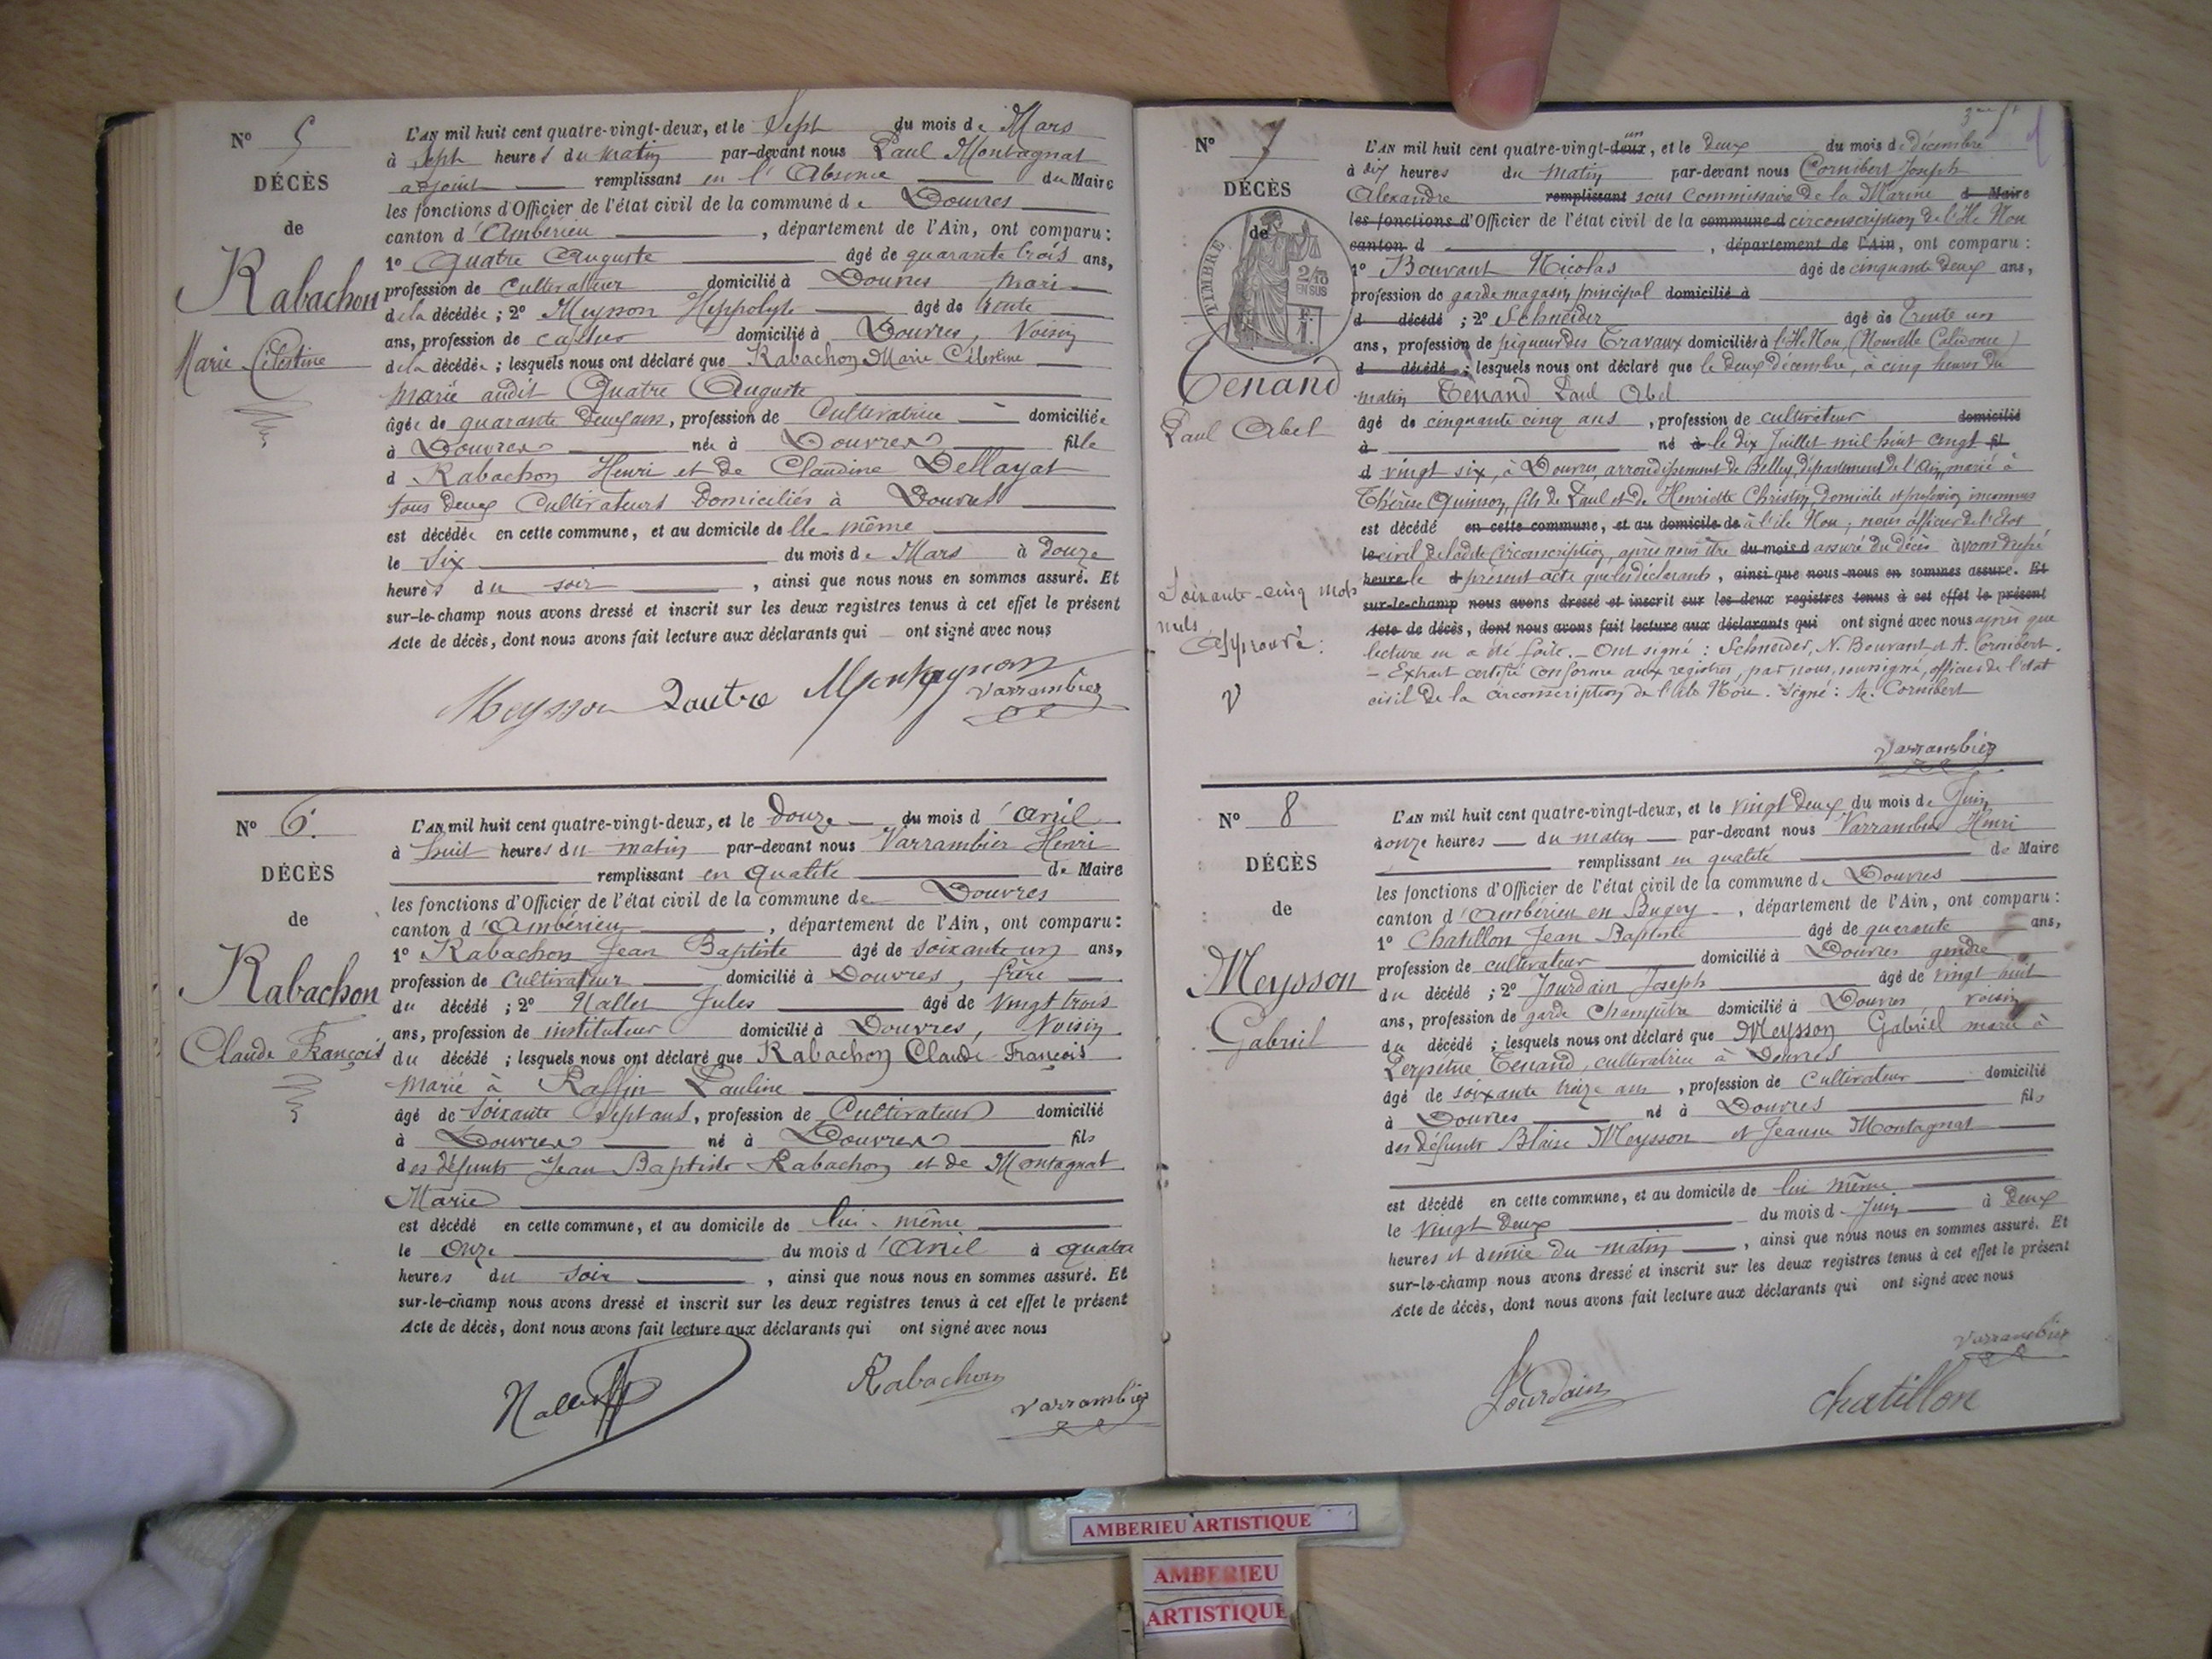 N° 5
DÉCÈS
de
Rabachon
Marie Célestine
L'AN mil huit cent quatre-vingt-deux, et le Sept du mois de Mars
à Sept heures du matin par-devant nous Paul Montagnat
adjoint remplissant en l'Absence du Maire
les fonctions d'Officier de l'état civil de la commune de Douvres
canton d'Ambérieu, département de l'Ain, ont comparu:
1° Quatre Auguste âgé de quarante trois ans,
profession de Cultivateur domicilié à Douvres mari
de la décédée; 2° Meysson Hyppolyte âgé de trente
ans, profession de domicilié à Douvres, Voisin
de la décédée; lesquels nous ont déclaré que Rabachon Marie Célestine
marié audit Quatre Auguste
âgée de quarante deux ans, profession de Cultivatrice domiciliée
à Douvres née à Douvres fille
d Rabachon Henri et de Claudine Dellayat
tous deux Cultivateurs Domiciliés à Douvres
est décédée en cette commune, et au domicile de lle même
le Six du mois de Mars à douze
heures du soir, ainsi que nous nous en sommes assuré. Et
sur-le-champ nous avons dressé et inscrit sur les deux registres tenus à cet effet le présent
Acte de décès, dont nous avons fait lecture aux déclarants qui ont signé avec nous
Meysson Quatre Montagnat
Varrambier
N° 6.
DÉCÈS
de
Rabachon
Claude François
L'AN mil huit cent quatre-vingt-deux, et le douze du mois d'Avril
à huit heures du matin par-devant nous Varrambier Henri
remplissant en qualité de Maire
les fonctions d'Officier de l'état civil de la commune de Douvres
canton d'Ambérieu, département de l'Ain, ont comparu:
1° Rabachon Jean Baptiste âgé de soixante un ans,
profession de Cultivateur domicilié à Douvres, frère
du décédé; 2° Nallet Jules âgé de vingt trois
ans, profession de instituteur domicilié à Douvres, Voisin
du décédé; lesquels nous ont déclaré que Rabachon Claude François
marié à Raffin Pauline
âgé de soixante sept ans, profession de Cultivateur domicilié
à Douvres né à Douvres fils
des défunts Jean Baptiste Rabachon et de Montagnat
Marie
est décédé en cette commune, et au domicile de lui-même
le onze du mois d'Avril à quatre
heures du soir, ainsi que nous nous en sommes assuré. Et
sur-le-champ nous avons dressé et inscrit sur les deux registres tenus à cet effet le présent
Acte de décès, dont nous avons fait lecture aux déclarants qui ont signé avec nous
Nallet Rabachon
Varrambier
N° 7
DÉCÈS
de
TIMBRE
2/10
EN SUS
Tenand
Paul Abel
Soixante-cinq mots
nuls
Approuvé:
V
L'AN mil huit cent quatre-vingt-deux un, et le deux du mois de décembre
à dix heures du matin par-devant nous Cornibert Joseph
Alexandre remplissant sous Commissaire de la Marine d Maire
les fonctions d'Officier de l'état civil de la commune d circonscription de l'Ile Nou
canton d, département de l'Ain, ont comparu:
1° Bouvant Nicolas âgé de cinquante deux ans,
profession de garde magasin principal domicilié à
d décédé; 2° Schneider âgé de Trente un
ans, profession de piqueur des Travaux domiciliés à l'Ile Nou (Nouvelle Calédonie)
d décédé; lesquels nous ont déclaré que le deux décembre, à cinq heures du
matin Tenand Paul Abel
âgé de cinquante cinq ans, profession de cultivateur domicilié
à né à le dix Juillet mil huit cent fil
d vingt six, à Douvres, arrondissement de Belley, département de l'Ain, marié à
Thérèse Quinson, fils de Paul et de Henriette Christin, Domicile et profession inconnus
est décédé en cette commune, et au domicile de à l'île Nou; nous officier de l'Etat
le civil de ladite Circonscription, après nous être du mois d assuré du décès à avons dressé
heure le d présent acte que les déclarants, ainsi que nous nous en sommes assuré. Et
sur-le-champ nous avons dressé et inscrit sur les deux registres tenus à cet effet le présent
Acte de décès, dont nous avons fait lecture aux déclarants qui ont signé avec nous après que
lecture en a été faite. — Ont signé: Schneider, N. Bouvant et A. Cornibert.
— Extrait certifié conforme aux registres, par nous, soussigné, officier de l'état
civil de la circonscription de l'île Nou. Signé: A. Cornibert
Varrambier
N° 8
DÉCÈS
de
Meysson
Gabriel
L'AN mil huit cent quatre-vingt-deux, et le vingt deux du mois de Juin
à onze heures du matin par-devant nous Varrambier Henri
remplissant en qualité de Maire
les fonctions d'Officier de l'état civil de la commune de Douvres
canton d'Ambérieu en Bugey, département de l'Ain, ont comparu:
1° Chatillon Jean Baptiste âgé de quarante ans,
profession de cultivateur domicilié à Douvres gendre
du décédé; 2° Jourdain Joseph âgé de vingt huit
ans, profession de garde champêtre domicilié à Douvres voisin
du décédé; lesquels nous ont déclaré que Meysson Gabriel marié à
Perpétue Tenand, cultivatrice à Douvres
âgé de soixante treize ans, profession de Cultivateur domicilié
à Douvres né à Douvres fils
des défunts Blaise Meysson et Jeanne Montagnat
est décédé en cette commune, et au domicile de lui même
le vingt deux du mois d Juin à deux
heures et demie du matin, ainsi que nous nous en sommes assuré. Et
sur-le-champ nous avons dressé et inscrit sur les deux registres tenus à cet effet le présent
Acte de décès, dont nous avons fait lecture aux déclarants qui ont signé avec nous
Varrambier
Jourdain chatillon
AMBERIEU ARTISTIQUE
AMBERIEU
ARTISTIQUE